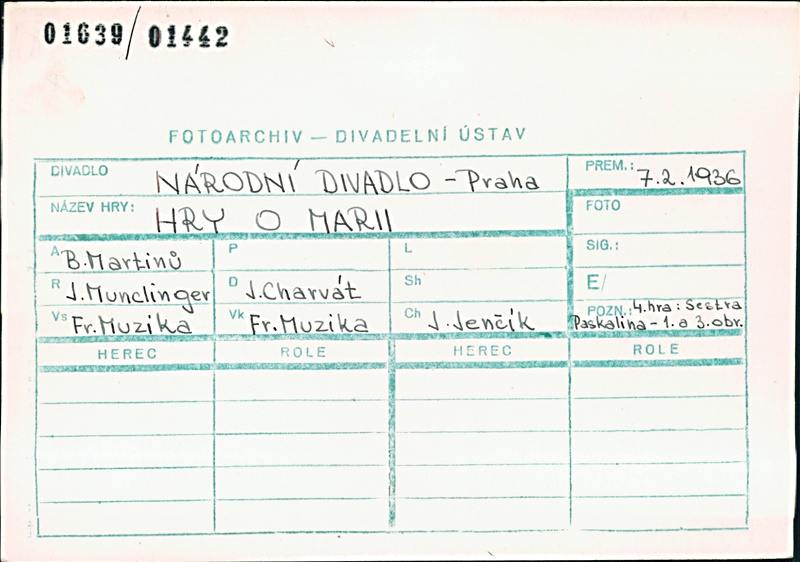 01639/01442
FOTOARCHIV — DIVADELNÍ ÚSTAV
DIVADLO NÁRODNÍ DIVADLO - Praha
PREM.: 7.2.1936
NÁZEV HRY: HRY O MARII
FOTO
A B. Martinů
P
L
SIG.:
R J. Munclinger
D J. Charvát
Sh
E/
Vs Fr. Muzika
Vk Fr. Muzika
Ch J. Jenčík
POZN.: 4. hra: Sestra
Paskalina - 1. a 3. obr.
HEREC ROLE HEREC ROLE